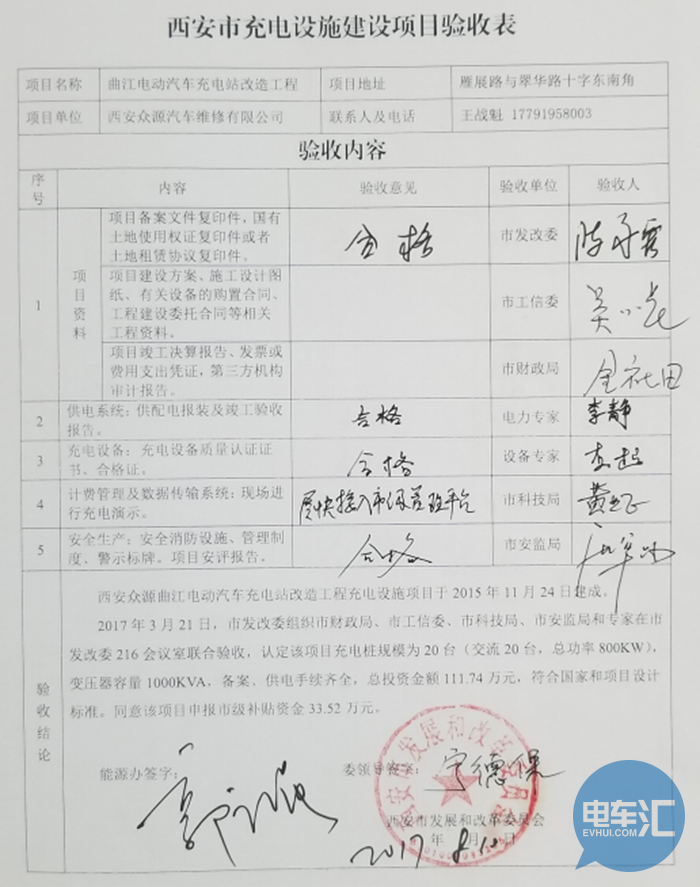 西安市充电设施建设项目验收表
项目名称 曲江电动汽车充电站改造工程 项目地址 雁展路与翠华路十字东南角
项目单位 西安众源汽车维修有限公司 联系人及电话 王战魁 17791958003
验收内容
序号 内容 验收意见 验收单位 验收人
1 项目资料
项目备案文件复印件,国有
土地使用权证复印件或者
土地租赁协议复印件。
合格 市发改委
项目建设方案、施工设计图
纸、有关设备的购置合同、
工程建设委托合同等相关
工程资料。
市工信委
项目竣工决算报告、发票或
费用支出凭证,第三方机构
审计报告。
市财政局 金社田
2 供电系统:供配电报装及竣工验收
报告。
合格 电力专家 李静
3 充电设备:充电设备质量认证证
书、合格证。
合格 设备专家
4 计费管理及数据传输系统:现场进
行充电演示。
尽快接入市级监控平台 市科技局
5 安全生产:安全消防设施、管理制
度、警示标牌。项目安评报告。
合格 市安监局
验收结论
西安众源曲江电动汽车充电站改造工程充电设施项目于 2015 年 11 月 24 日建成。
2017 年 3 月 21 日,市发改委组织市财政局、市工信委、市科技局、市安监局和专家在市
发改委 216 会议室联合验收,认定该项目充电桩规模为 20 台(交流 20 台,总功率 800KW),
变压器容量 1000KVA,备案、供电手续齐全,总投资金额 111.74 万元,符合国家和项目设计
标准。同意该项目申报市级补贴资金 33.52 万元。
能源办签字:
委领导签字: 宁德保
西安市发展和改革委员会
西安市发展和改革委员会
年 月 日
2017 8
电车汇
EVHUI.COM